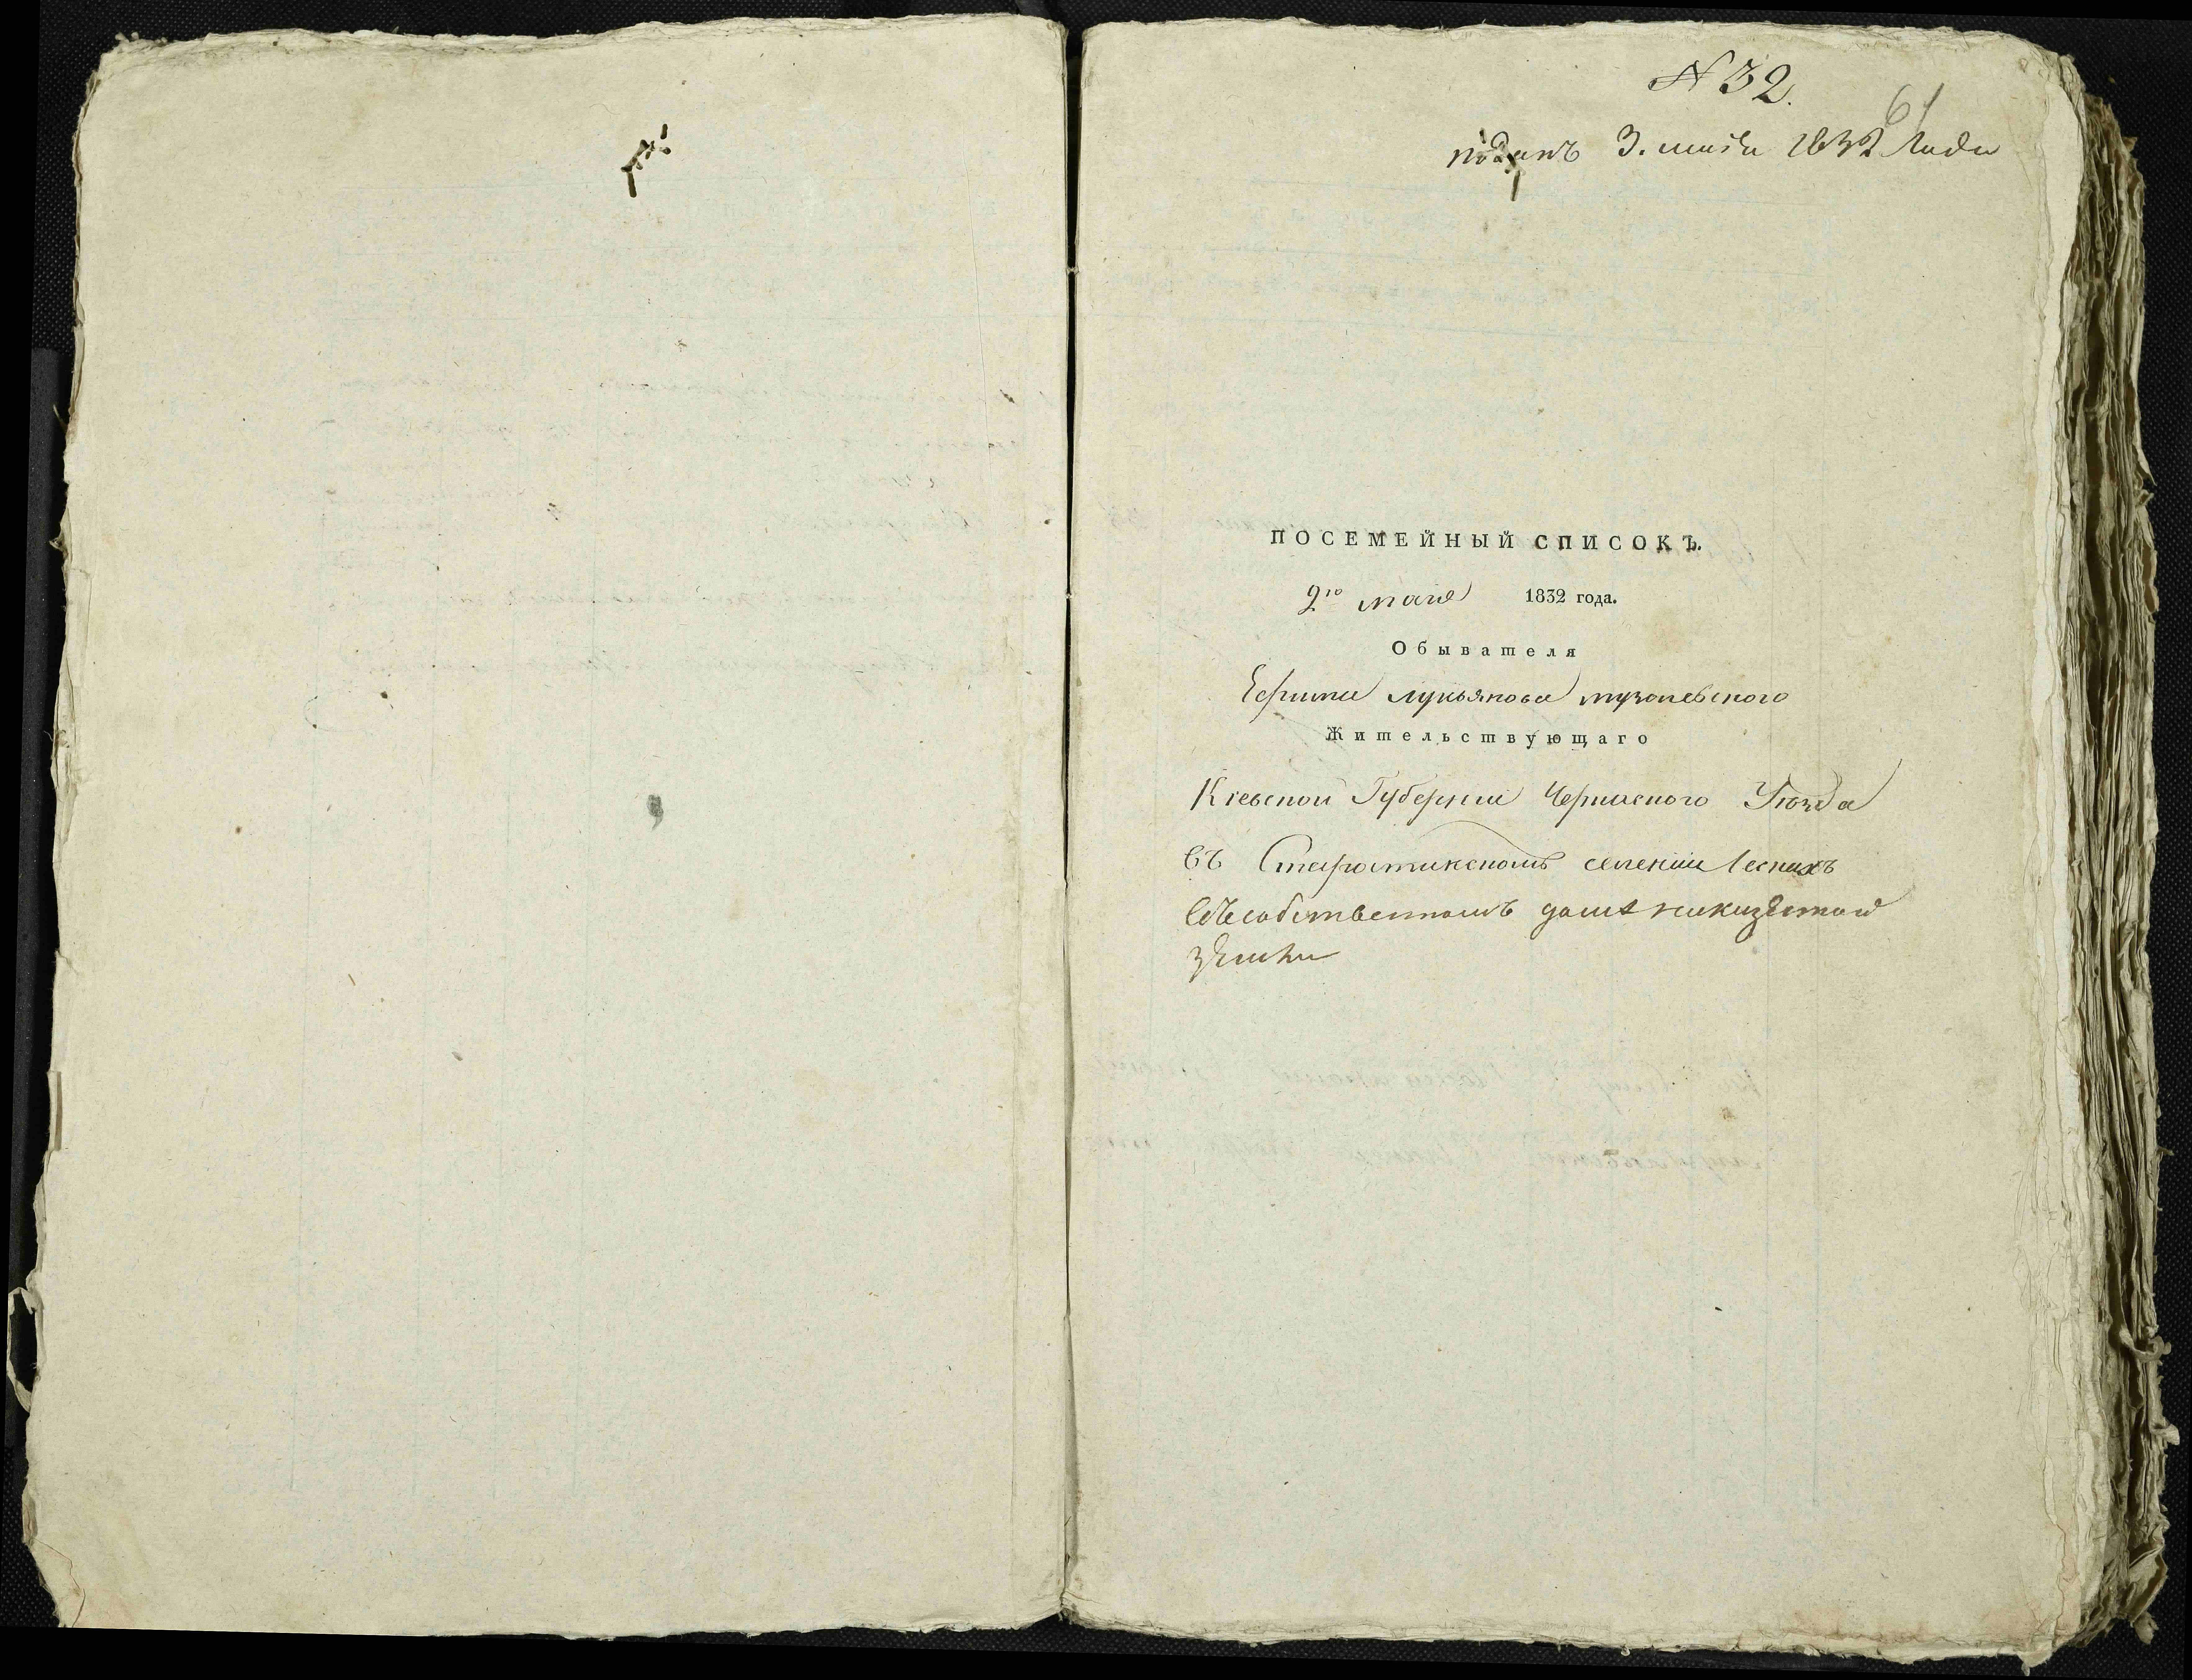 N 32.
61
поданъ 3. маія 1832 Года
ПОСЕМЕЙНЫЙ СПИСОКЪ.
2го мая 1832 года.
Обывателя
Ефима Лукьянова Музалевского
Жительствующаго
Кіевской Губерніи Черкаского Уезда
въ Старостинскомъ селеніи Леськахъ
въ собственномъ доме на казѣнной
зѣмли